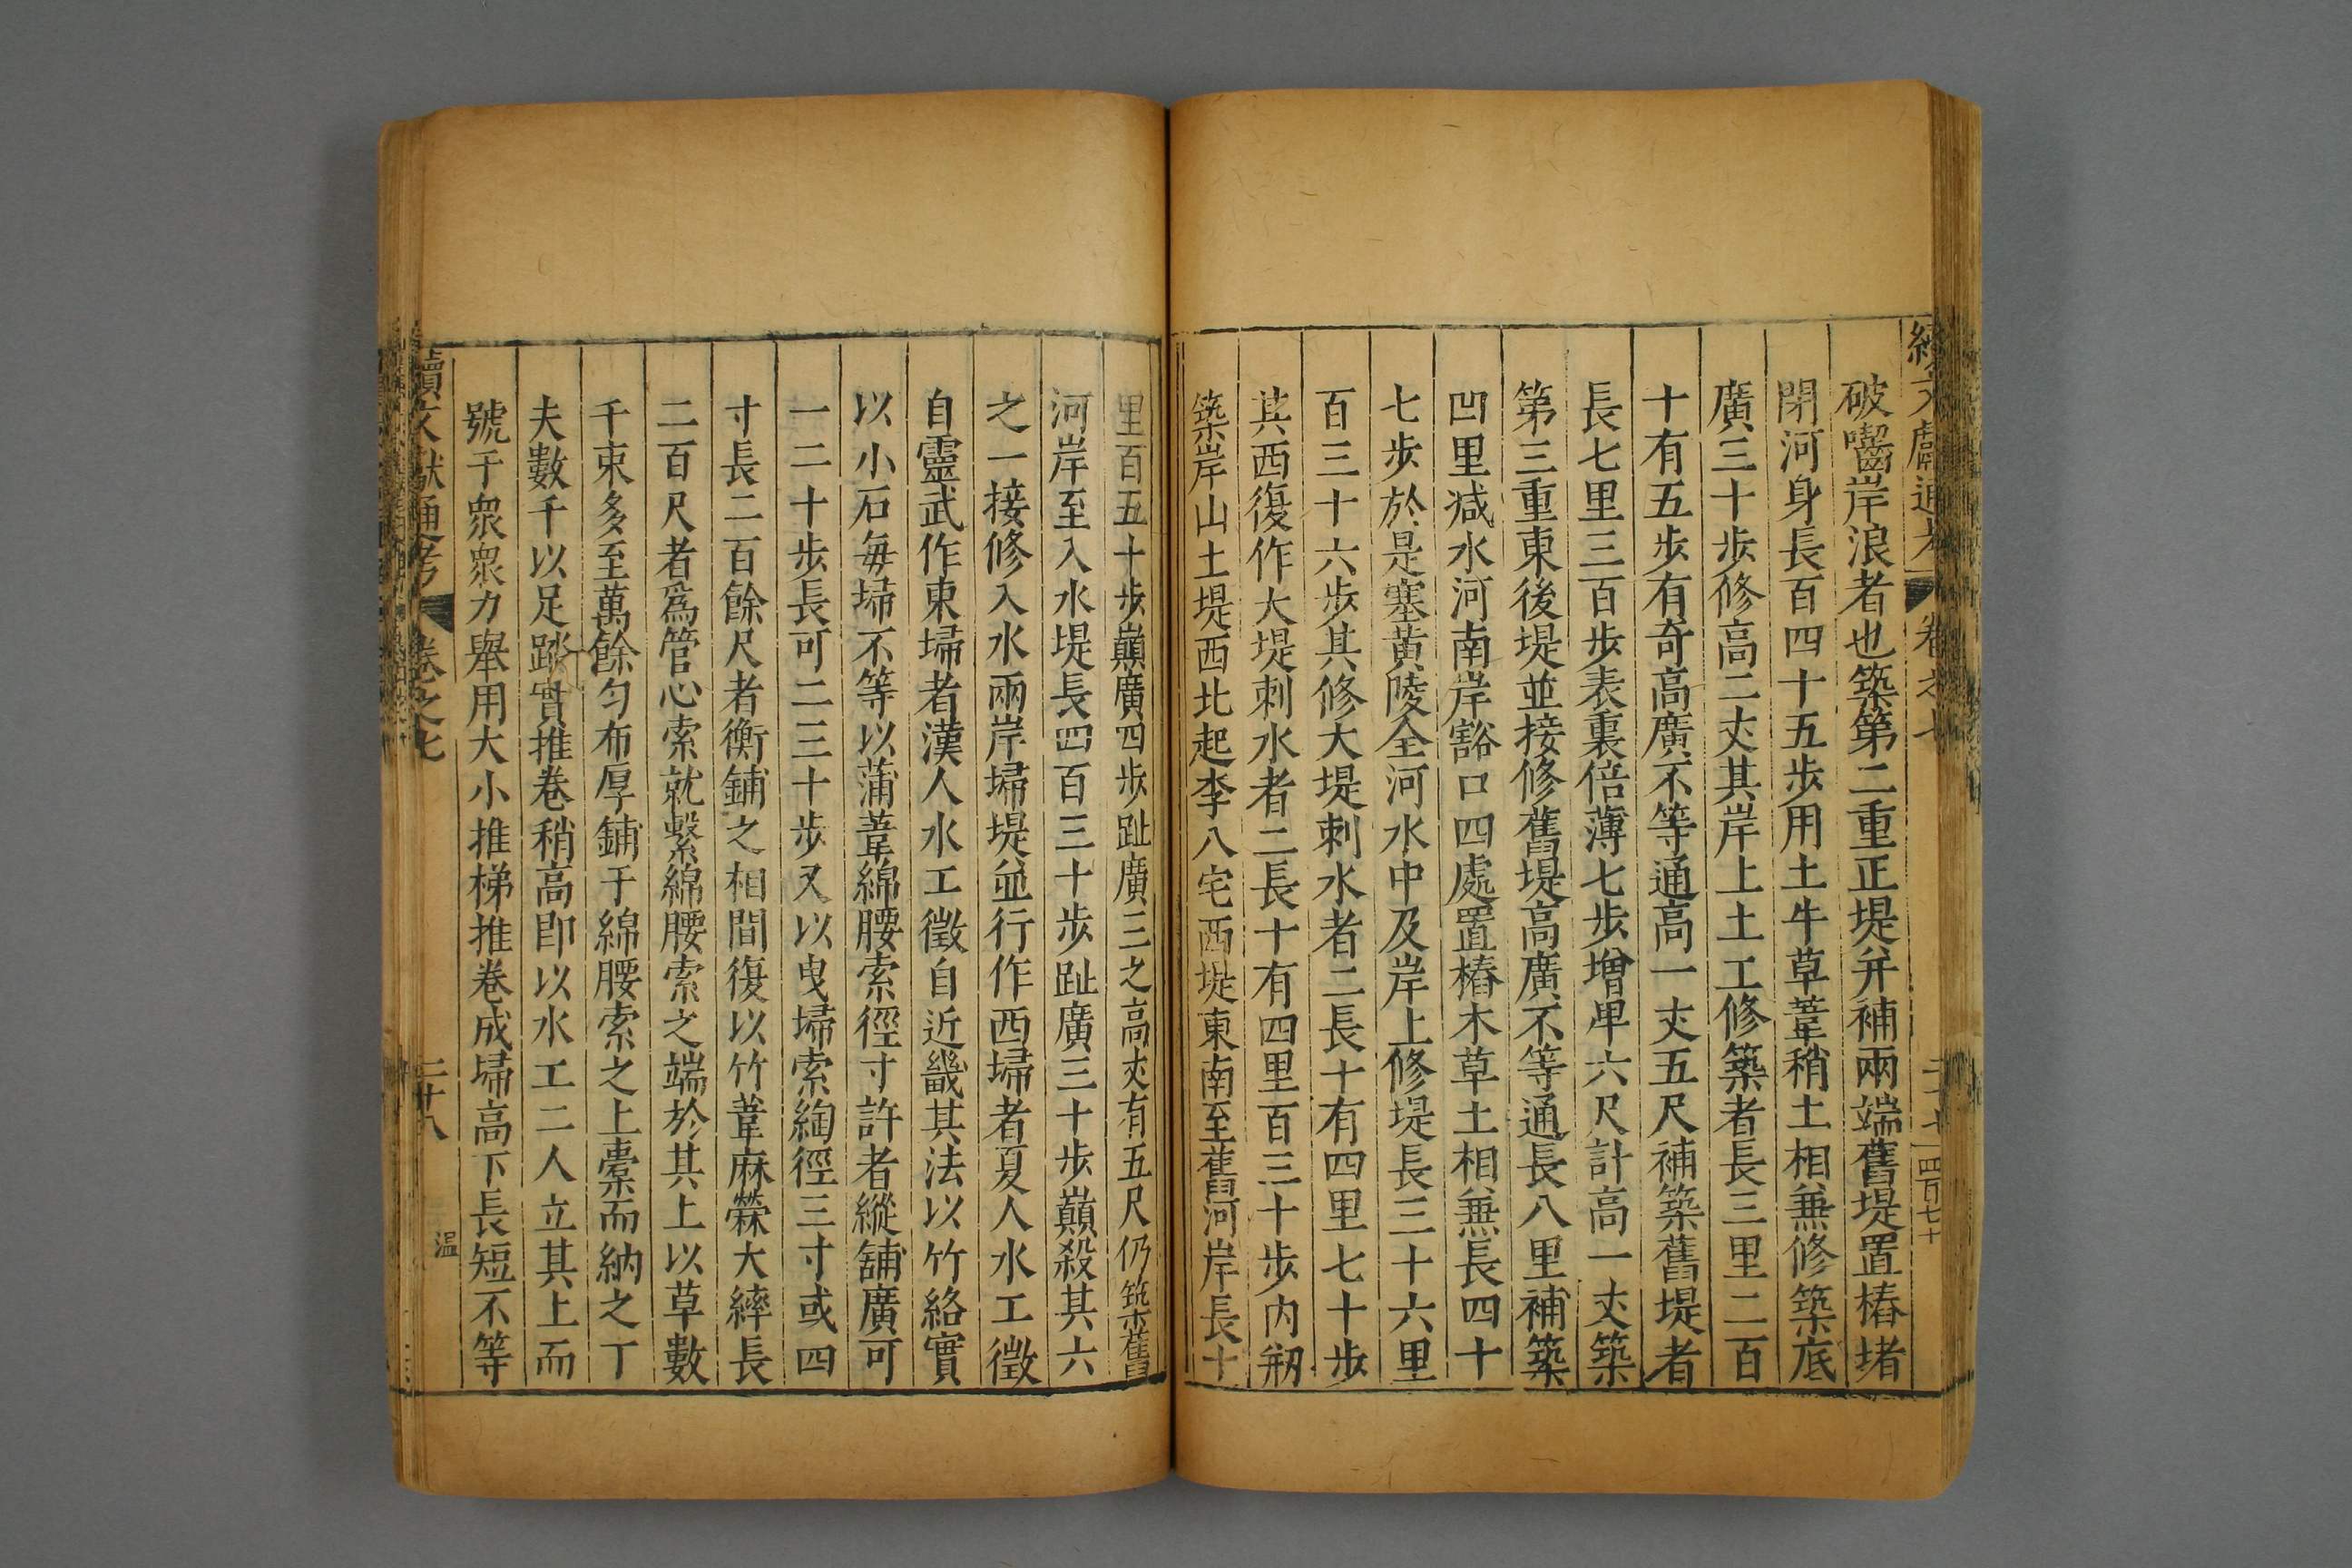 續文獻通考 卷之七 二十七 四百七十
破囓岸浪者也築第二重正堤并補兩端舊堤置樁堵
閉河身長百四十五步用土牛草葦稍土相兼修築底
廣三十步修高二丈其岸上土工修築者長三里二百
十有五步有奇高廣不等通高一丈五尺補築舊堤者
長七里三百步表裏倍薄七步增卑六尺計高一丈築
第三重東後堤並接修舊堤高廣不等通長八里補築
凹里減水河南岸豁口四處置樁木草土相兼長四十
七步於是塞黃陵全河水中及岸上修堤長三十六里
百三十六步其修大堤刺水者二長十有四里七十步
其西復作大堤刺水者二長十有四里百三十步內剏
築岸山土堤西北起李八宅西堤東南至舊河岸長十
里百五十步巔廣四步趾廣三之高丈有五尺仍築舊
河岸至入水堤長四百三十步趾廣三十步巔殺其六
之一接修入水兩岸埽堤並行作西埽者夏人水工徵
自靈武作東埽者漢人水工徵自近畿其法以竹絡實
以小石每埽不等以蒲葦綿腰索徑寸許者縱鋪廣可
一二十步長可二三十步又以曳埽索綯徑三寸或四
寸長二百餘尺者衡鋪之相間復以竹葦麻檾大繂長
二百尺者爲管心索就繫綿腰索之端於其上以草數
千束多至萬餘勻布厚鋪于綿腰索之上橐而納之丁
夫數千以足踏實推卷稍高卽以水工二人立其上而
號于衆衆力舉用大小推梯推卷成埽高下長短不等
續文獻通考 卷之七 二十八 温